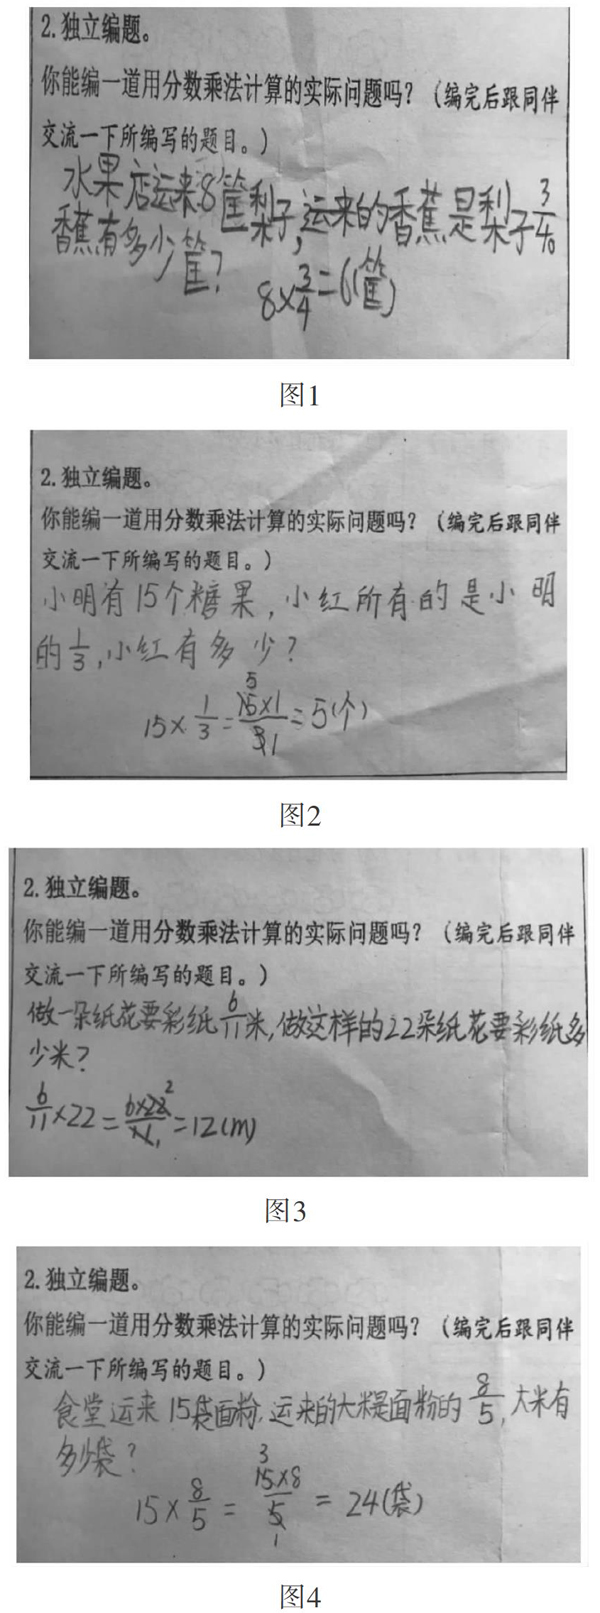 2.独立编题。
你能编一道用分数乘法计算的实际问题吗？（编完后跟同伴
交流一下所编写的题目。）
水果店运来8筐梨子,运来的香蕉是梨子3/4,
香蕉有多少筐?
8×3/4=6(筐)
图1
2.独立编题。
你能编一道用分数乘法计算的实际问题吗？（编完后跟同伴
交流一下所编写的题目。）
小明有15个糖果,小红所有的是小明
的1/3,小红有多少?
15×1/3=15×1/3=5(个)
图2
2.独立编题。
你能编一道用分数乘法计算的实际问题吗？（编完后跟同伴
交流一下所编写的题目。）
做一朵纸花要彩纸6/11米,做这样的22朵纸花要彩纸多
少米?
6/11×22=6×22/11=12(m)
图3
2.独立编题。
你能编一道用分数乘法计算的实际问题吗？（编完后跟同伴
交流一下所编写的题目。）
食堂运来15袋面粉,运来的大米是面粉的8/5,大米有
多少袋?
15×8/5=15×8/5=24(袋)
图4